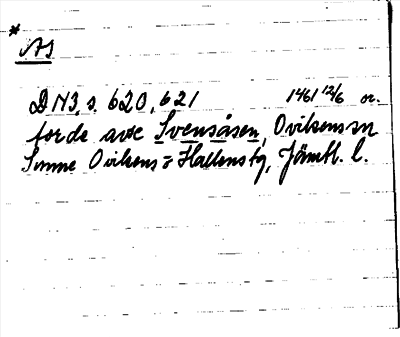 *
AS
DN3, s. 620, 621 1461 12/6 or.
jorde awc Svensåsen, Ovikenssn
Sunne Ovikens o Hallens tg, Jämtl. l.